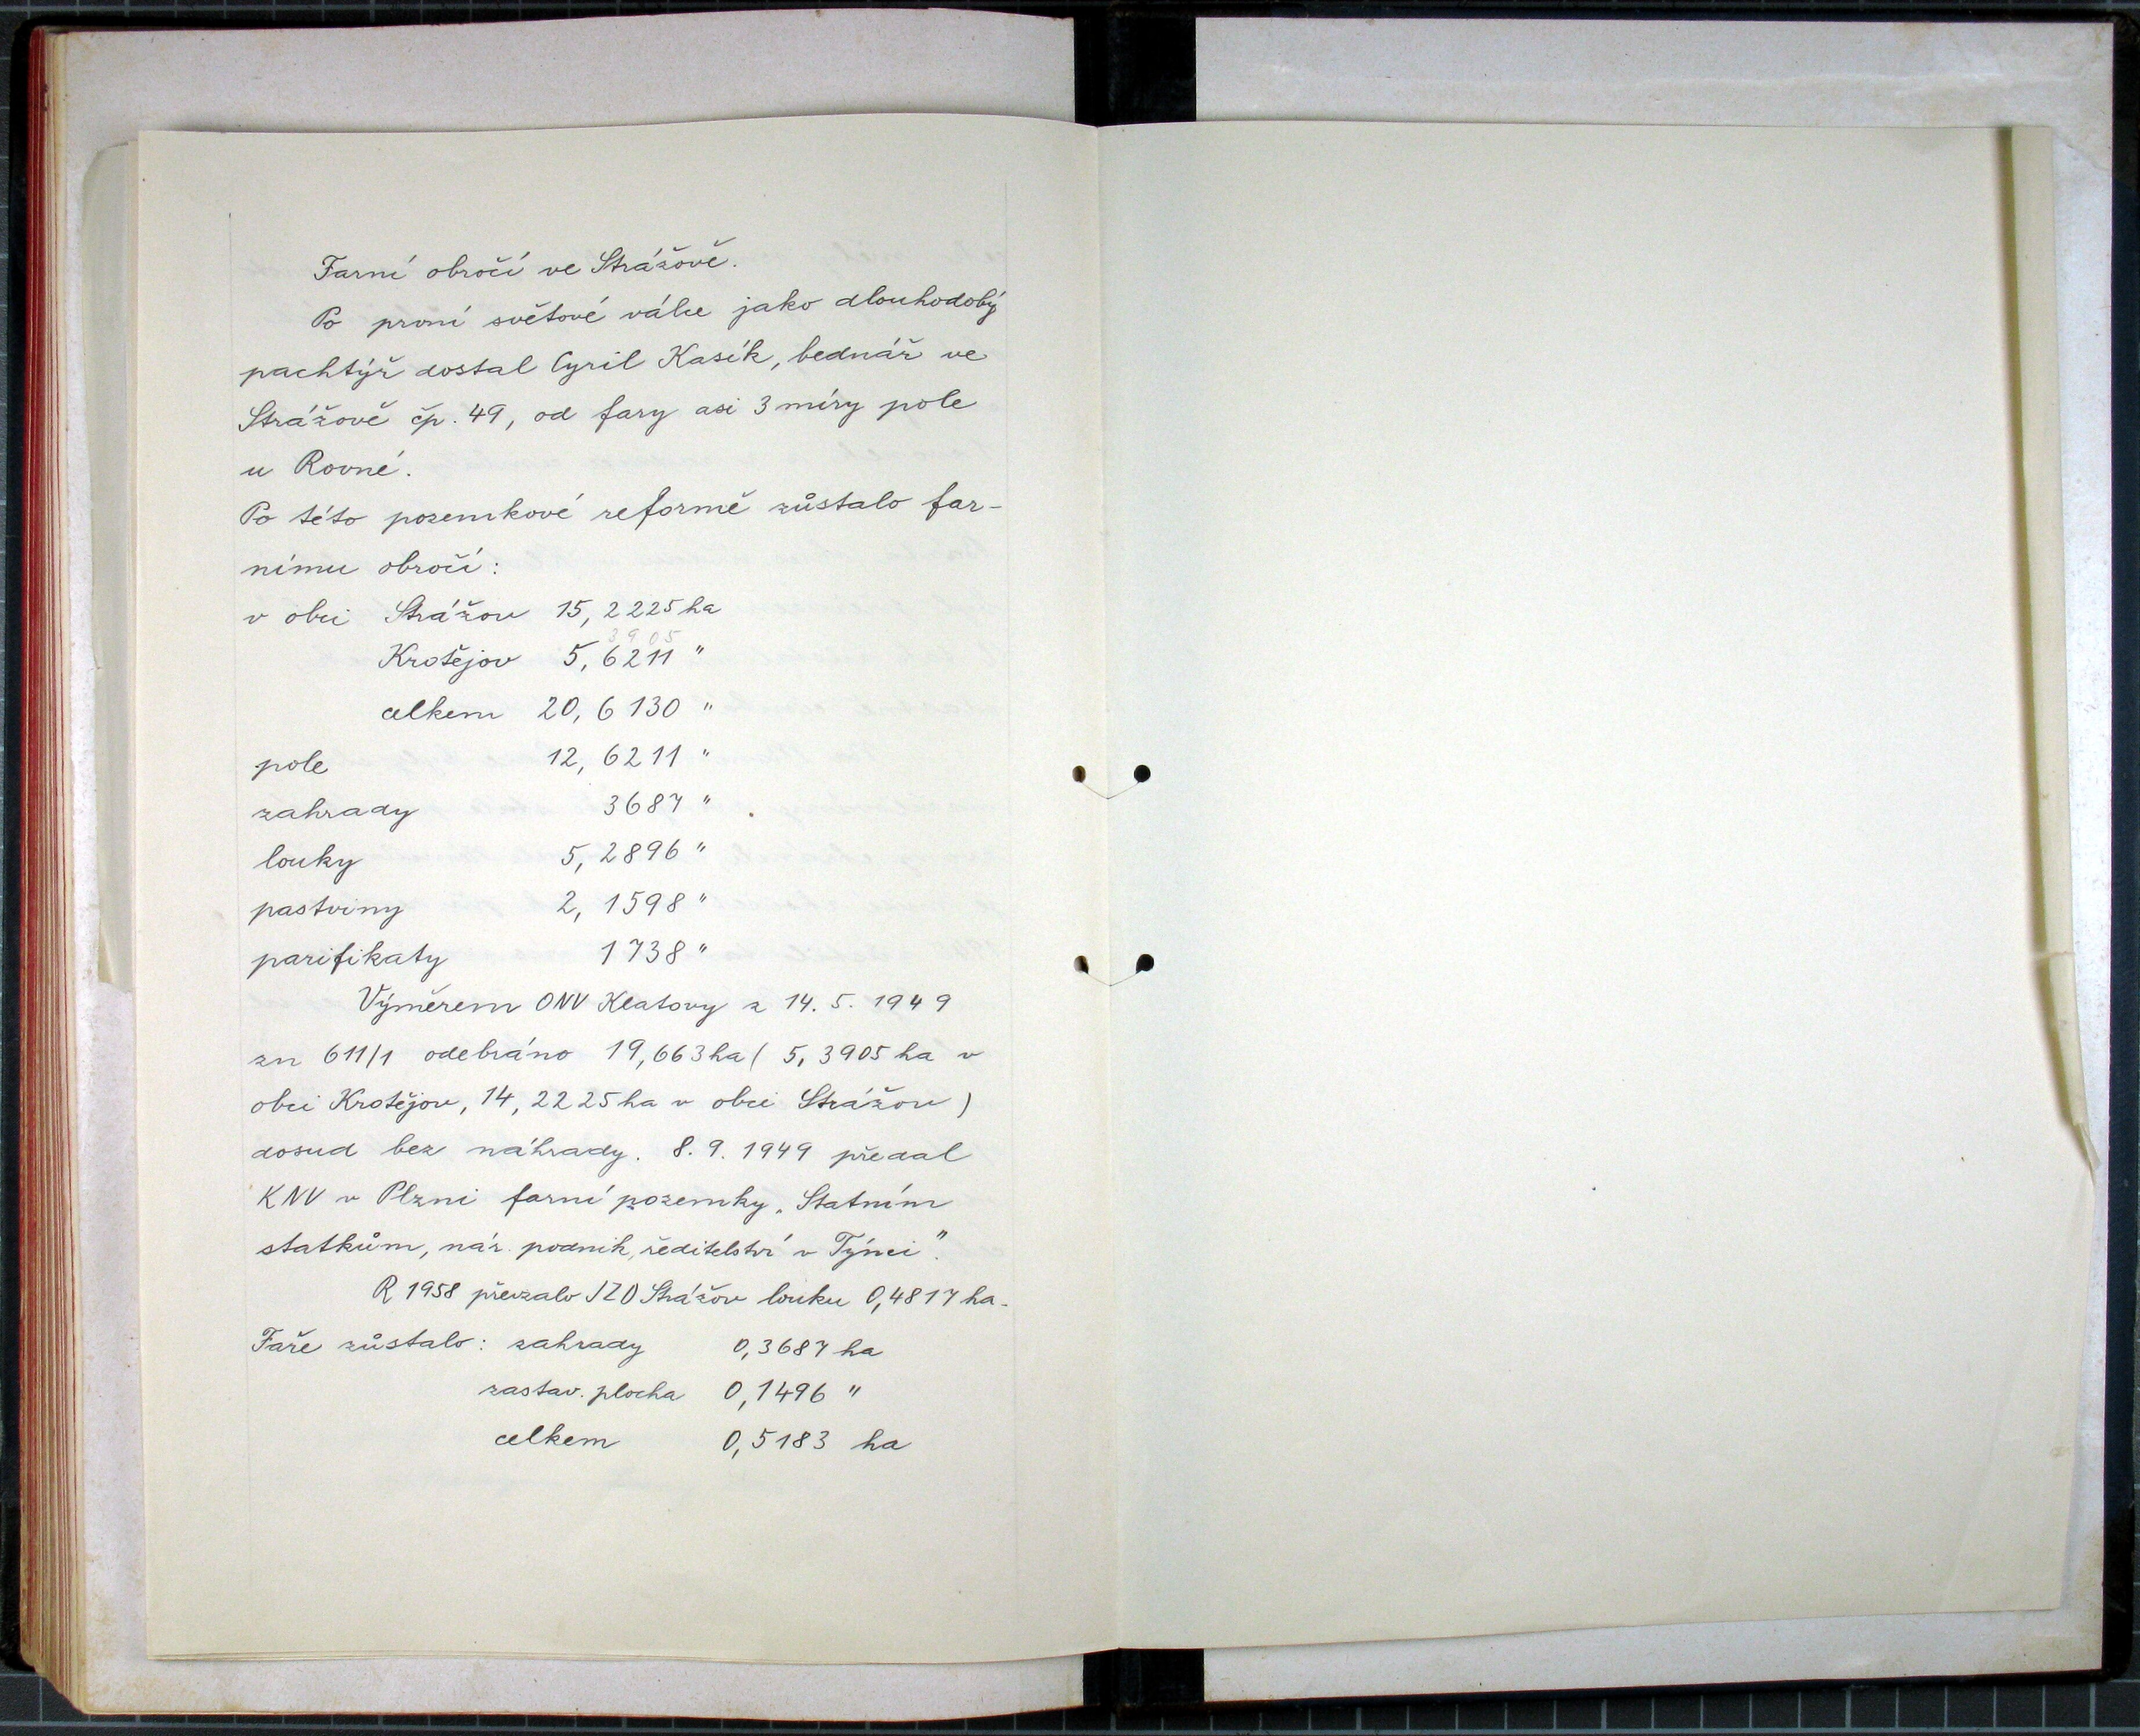 Farní obročí ve Strážově.
Po první světové válce jako dlouhodobý
pachtýř dostal Cyril Kasík, bednář ve
Strážově čp. 49, od fary asi 3 míry pole
u Rovné.
Po této pozemkové reformě zůstalo far-
nímu obročí:
v obci Strážov 15,2225 ha
3905
Krotějov 5,6211 "
celkem 20,6130 "
pole 12,6211 "
zahrady 3687 "
louky 5,2896 "
pastviny 2,1598 "
parifikaty 1738 "
Výměrem ONV Klatovy z 14. 5. 1949
zn 611/1 odebráno 19,663 ha ( 5,3905 ha v
obci Krotějov, 14,2225 ha v obci Strážov )
dosud bez náhrady. 8. 9. 1949 předal
KNV v Plzni farní pozemky „Statním
statkům, nár. podnik, ředitelství v Týnci".
R 1958 převzalo JZD Strážov louku 0,4817 ha.
Faře zůstalo: zahrady 0,3687 ha
zastav. plocha 0,1496 "
celkem 0,5183 ha